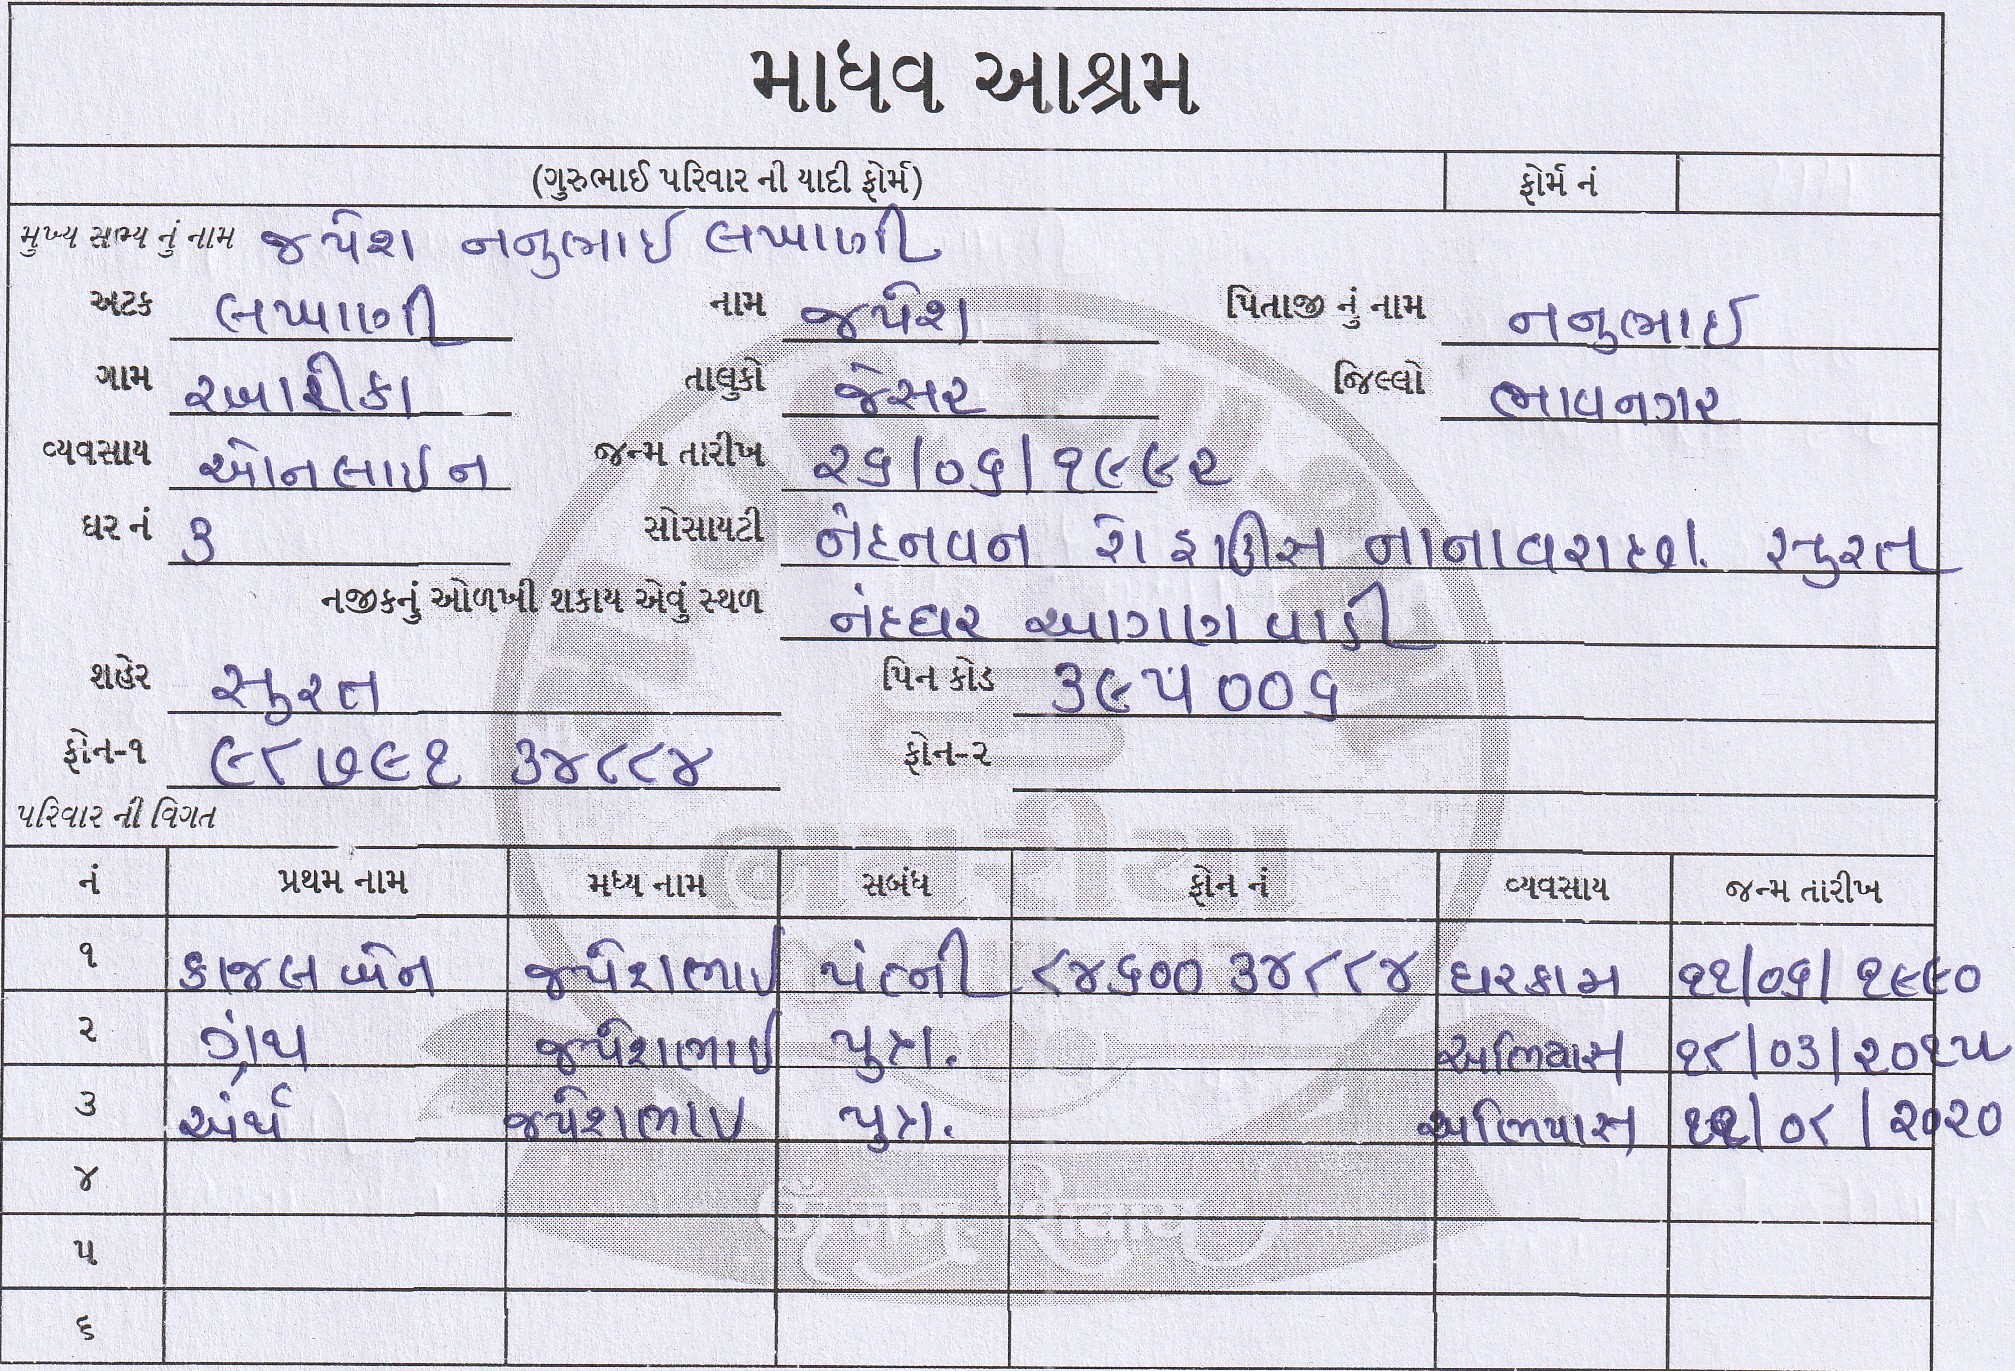 માધવ આશ્રમ
(ગુરુભાઈ પરિવાર ની યાદી ફોર્મ) ફોર્મ નં
મુખ્ય સભ્ય નું નામ જયેશ નનુભાઈ લખાણી
અટક લખાણી નામ જયેશ પિતાજી નું નામ નનુભાઈ
ગામ રબારીકા તાલુકો જેસર જિલ્લો ભાવનગર
વ્યવસાય ઓનલાઈન જન્મ તારીખ ૨૬/૦૬/૧૯૯૨
ઘર નં ૩ સોસાયટી નંદનવન રો હાઉસ નાનાવરાછા. સુરત
નજીકનું ઓળખી શકાય એવું સ્થળ નંદઘર આગણ વાડી
શહેર સુરત પિન કોડ ૩૯૫૦૦૬
ફોન-૧ ૯૮૭૯૧ ૩૪૮૮૪ ફોન-૨
પરિવાર ની વિગત
નં પ્રથમ નામ મધ્ય નામ સબંધ ફોન નં વ્યવસાય જન્મ તારીખ
૧ કાજલ બેન જયેશભાઈ પત્ની ૮૪૬૦૦ ૩૪૮૮૪ ઘરકામ ૧૧/૦૬/૧૯૯૦
૨ ગ્રંથ જયેશભાઈ પુત્ર. અભ્યાસ ૧૮/૦૩/૨૦૧૫
૩ અર્થ જયેશભાઈ પુત્ર. અભ્યાસ /૦૮/૨૦૨૦
૪
૫
૬